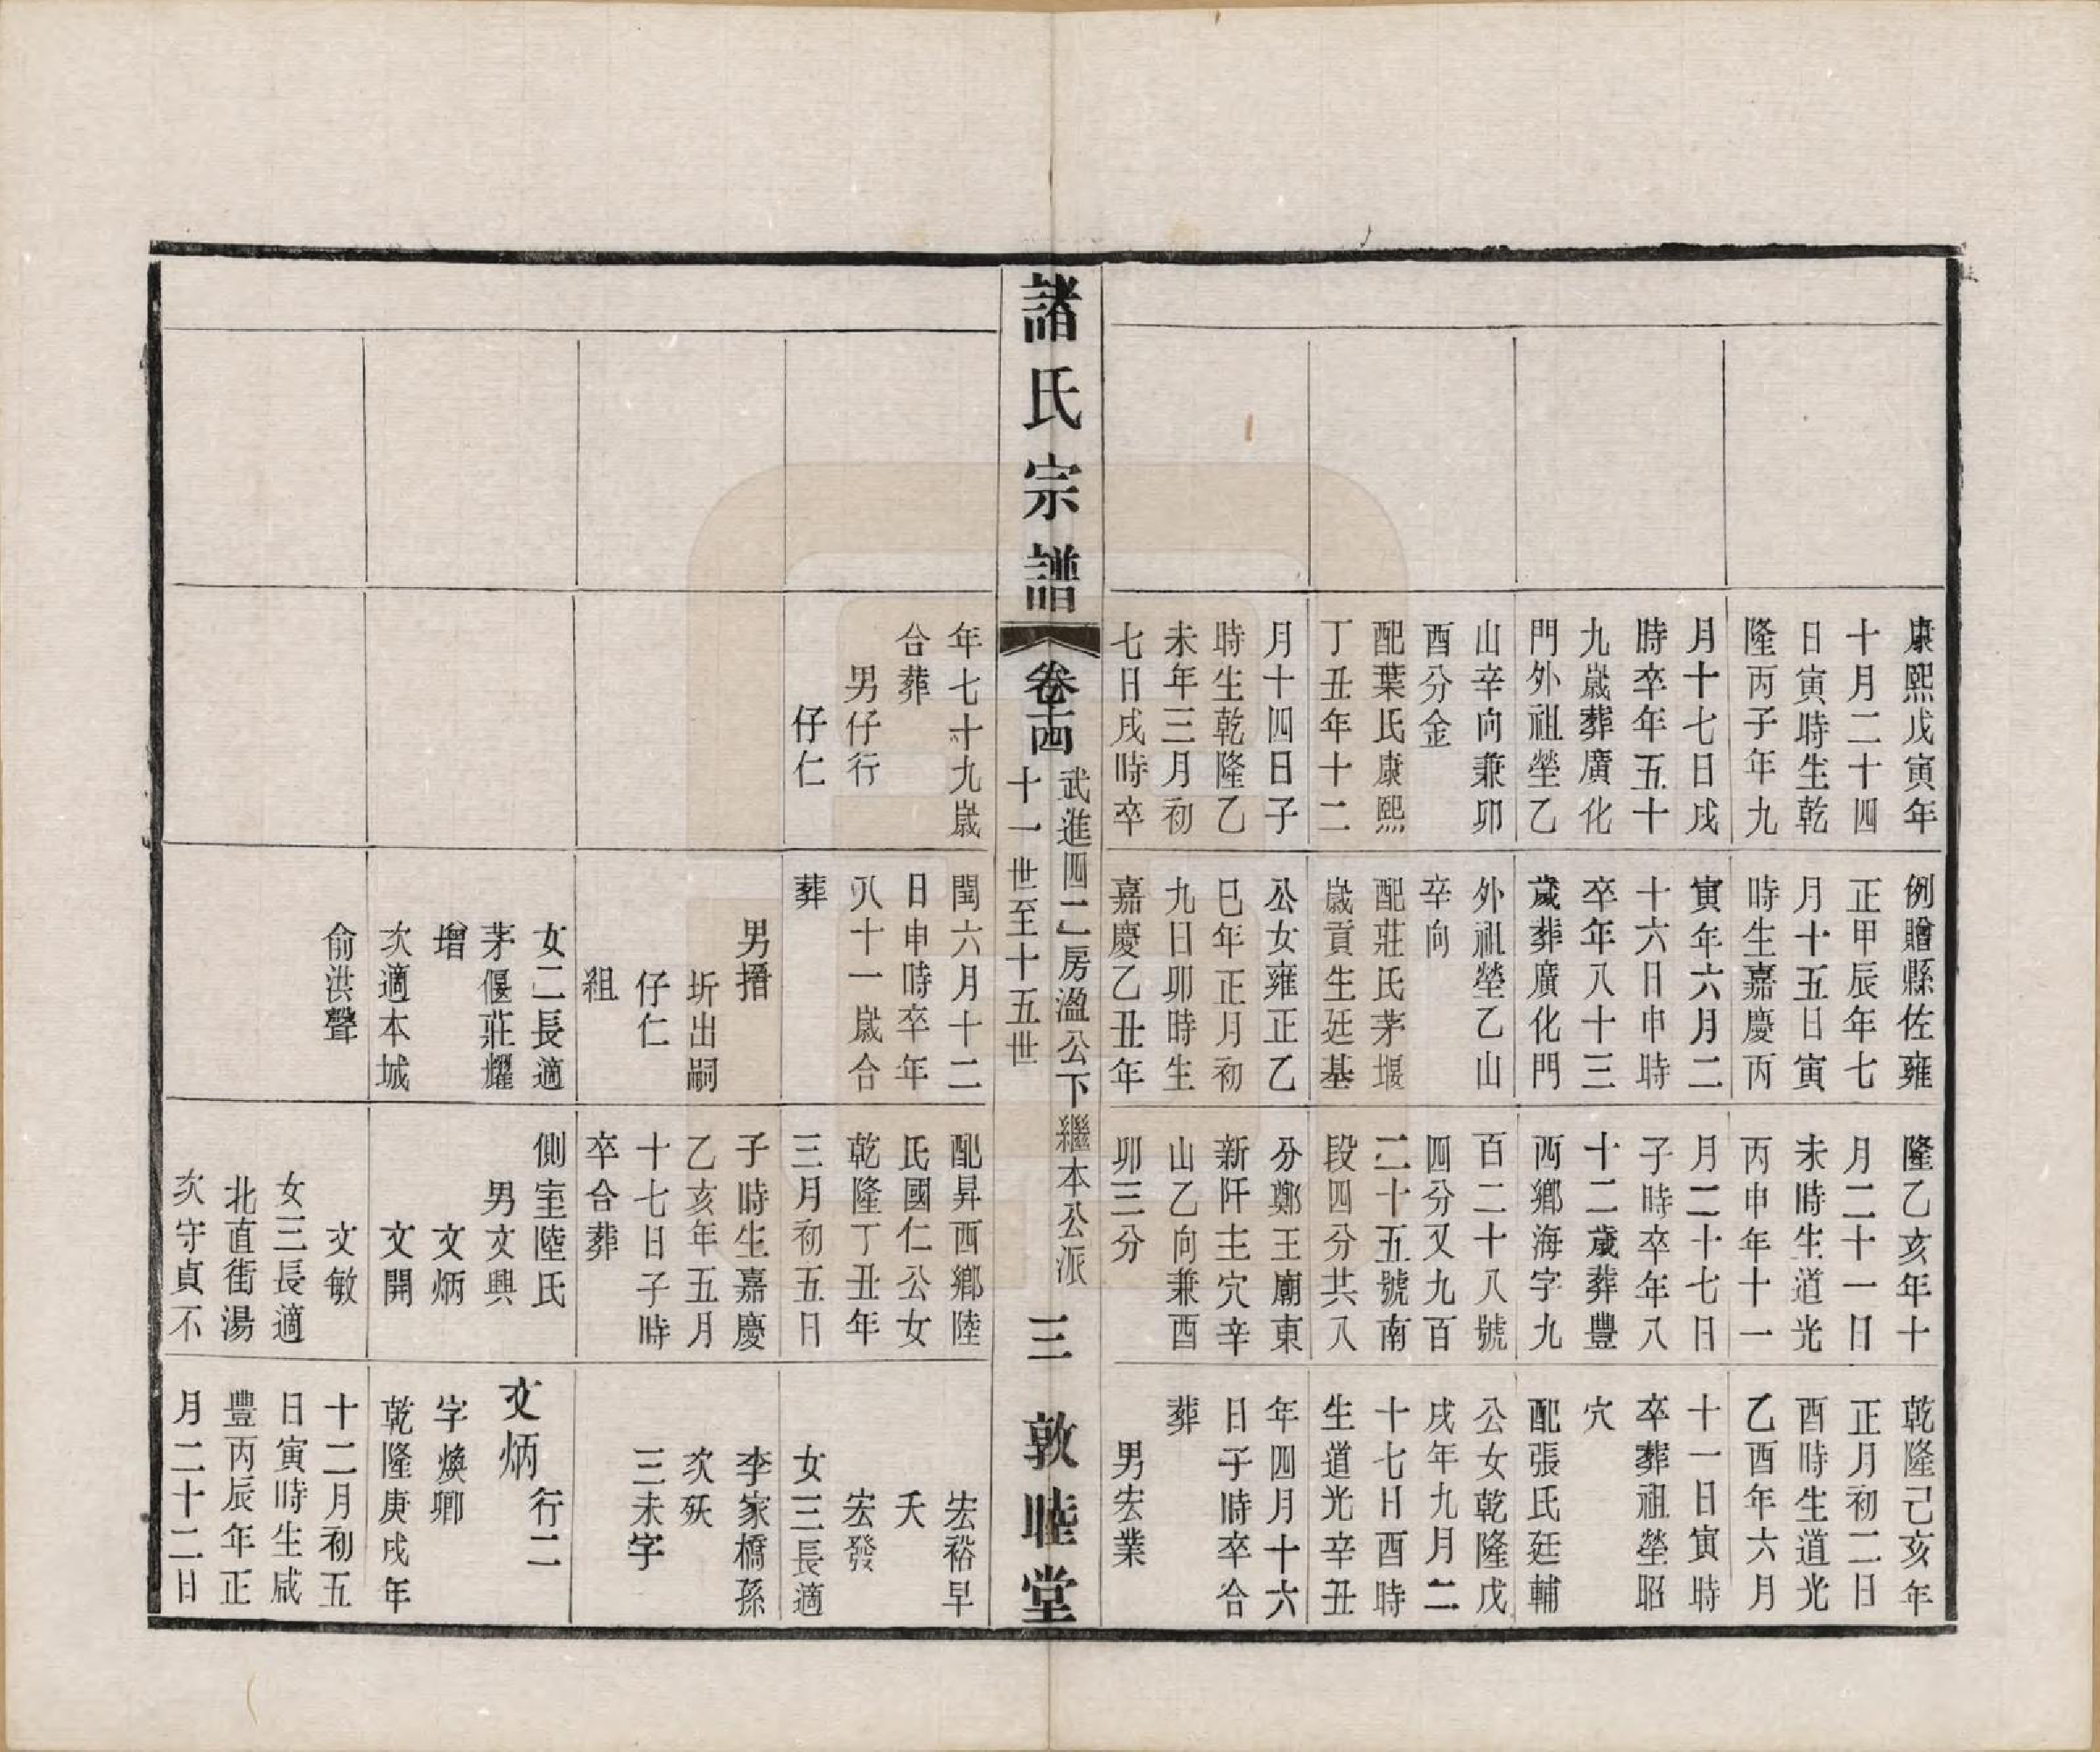 康熙戊寅年
十月二十四
日寅時生乾
隆丙子年九
月十七日戌
時卒年五十
九歲葬廣化
門外祖塋乙
山辛向兼卯
酉分金
配葉氏康熙
丁丑年十二
月十四日子
時生乾隆乙
未年三月初
七日戌時卒
例贈縣佐雍
正甲辰年七
月十五日寅
時生嘉慶丙
寅年六月二
十六日申時
卒年八十三
歲葬廣化門
外祖塋乙山
辛向
配莊氏茅堰
歲貢生廷基
公女雍正乙
巳年正月初
九日卯時生
嘉慶乙丑年
隆乙亥年十
月二十一日
未時生道光
丙申年十一
月二十七日
子時卒年八
十二歲葬豐
西鄉海字九
百二十八號
四分又九百
二十五號南
段四分共八
分鄭王廟東
新阡主穴辛
山乙向兼酉
卯三分
乾隆己亥年
正月初二日
酉時生道光
乙酉年六月
十一日寅時
卒葬祖塋昭
穴
配張氏廷輔
公女乾隆戊
戌年九月二
十七日酉時
生道光辛丑
年四月十六
日子時卒合
葬
男宏業
諸氏宗譜
卷十四
武進四二房溢公下繼本公派
十一世至十五世
三
敦睦堂
年七十九歲
合葬
男仔行
仔仁
閏六月十二
日申時卒年
八十一歲合
葬
男搢
圻出嗣
仔仁
組
女二長適
茅偃莊耀
增
次適本城
俞洪聲
配昇西鄉陸
氏國仁公女
乾隆丁丑年
三月初五日
子時生嘉慶
乙亥年五月
十七日子時
卒合葬
側室陸氏
男文興
文炳
文開
文敏
女三長適
北直街湯
次守貞不
宏裕早
夭
宏發
女三長適
李家橋孫
次殀
三未字
文炳行二
字煥卿
乾隆庚戌年
十二月初五
日寅時生咸
豐丙辰年正
月二十二日